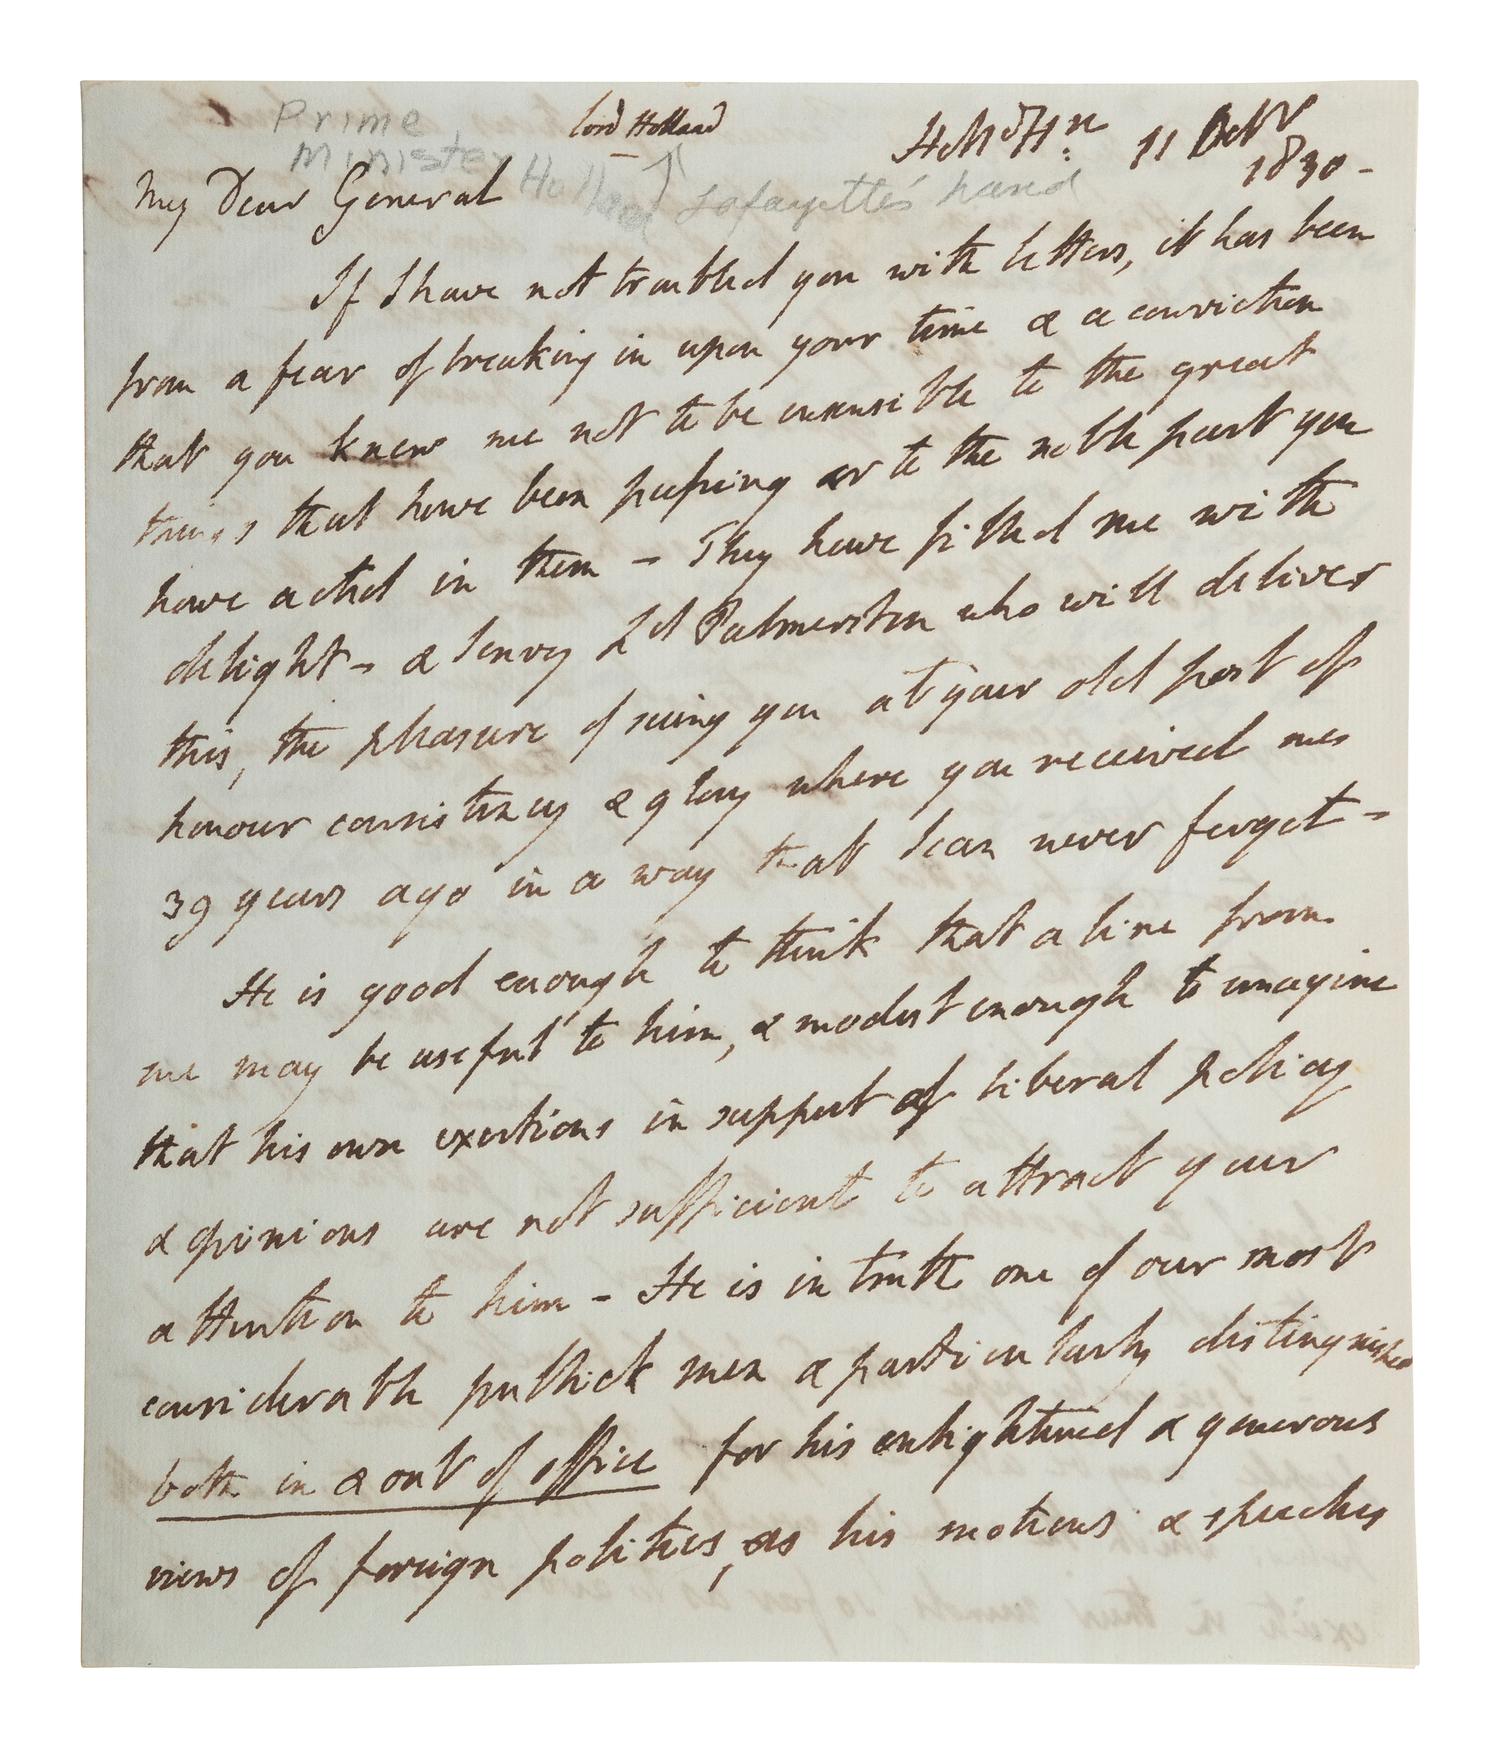 Prime
Minister Holland
Lord Holland
↑ Lafayette's hand
11 Octbr
1830 -
My Dear General
If I have not troubled you with letters, it has been
from a fear of breaking in upon your time & a conviction
that you knew me not to be insensible to the great
things that have been passing or to the noble part you
have acted in them - They have filled me with
delight - & I envy Ld Palmerston who will deliver
this, the pleasure of seeing you at your old post of
honour consistency & glory where you received me
39 years ago in a way that I can never forget -
He is good enough to think that a line from
me may be useful to him, & modest enough to imagine
that his own exertions in support of liberal policy
& opinions are not sufficient to attract your
attention to him - He is in truth one of our most
considerable publick men & particularly distinguished
both in & out of office for his enlightened & generous
views of foreign politics, as his motions & speeches